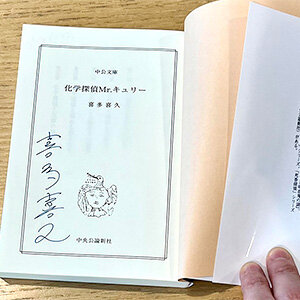 中公文庫
化学探偵Mr.キュリー
喜多喜久
喜多喜久
中央公論新社